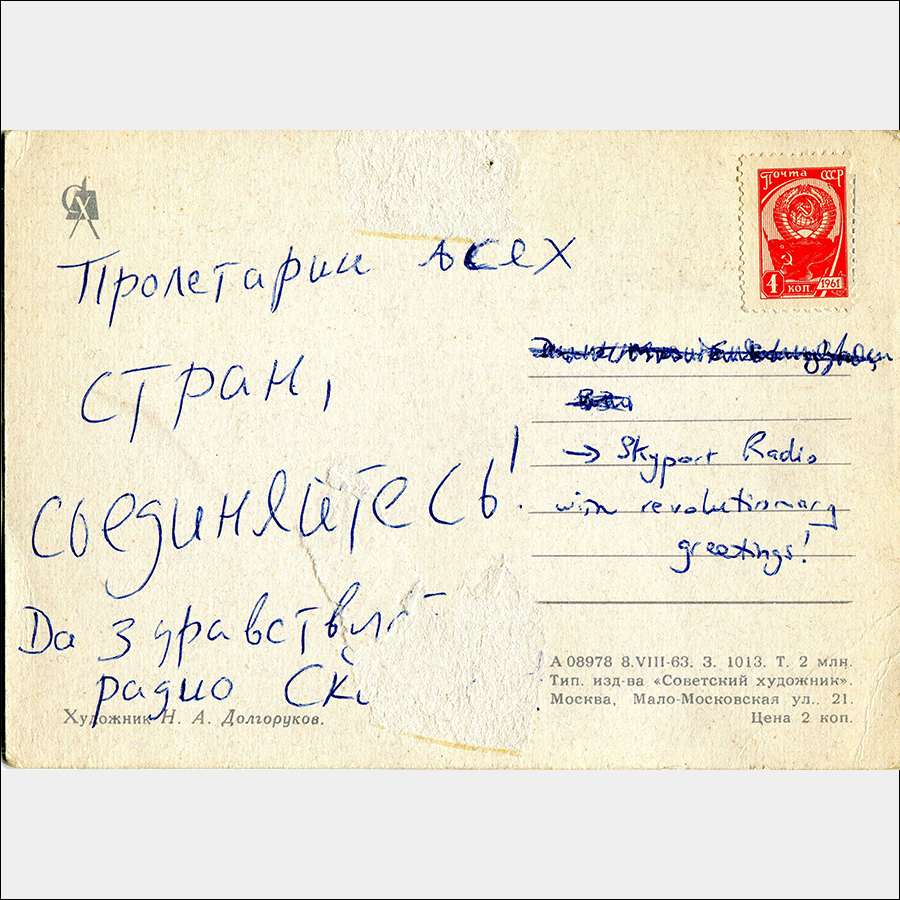 Почта СССР
4 коп 1961
Пролетарии всех
стран,
соединяйтесь!
Да здравствует
радио
→ Skyport Radio
with revolutionary
greetings!
Художник Н. А. Долгоруков.
А 08978 8.VIII-63. З. 1013. Т. 2 млн.
Тип. изд-ва «Советский художник».
Москва, Мало-Московская ул., 21.
Цена 2 коп.